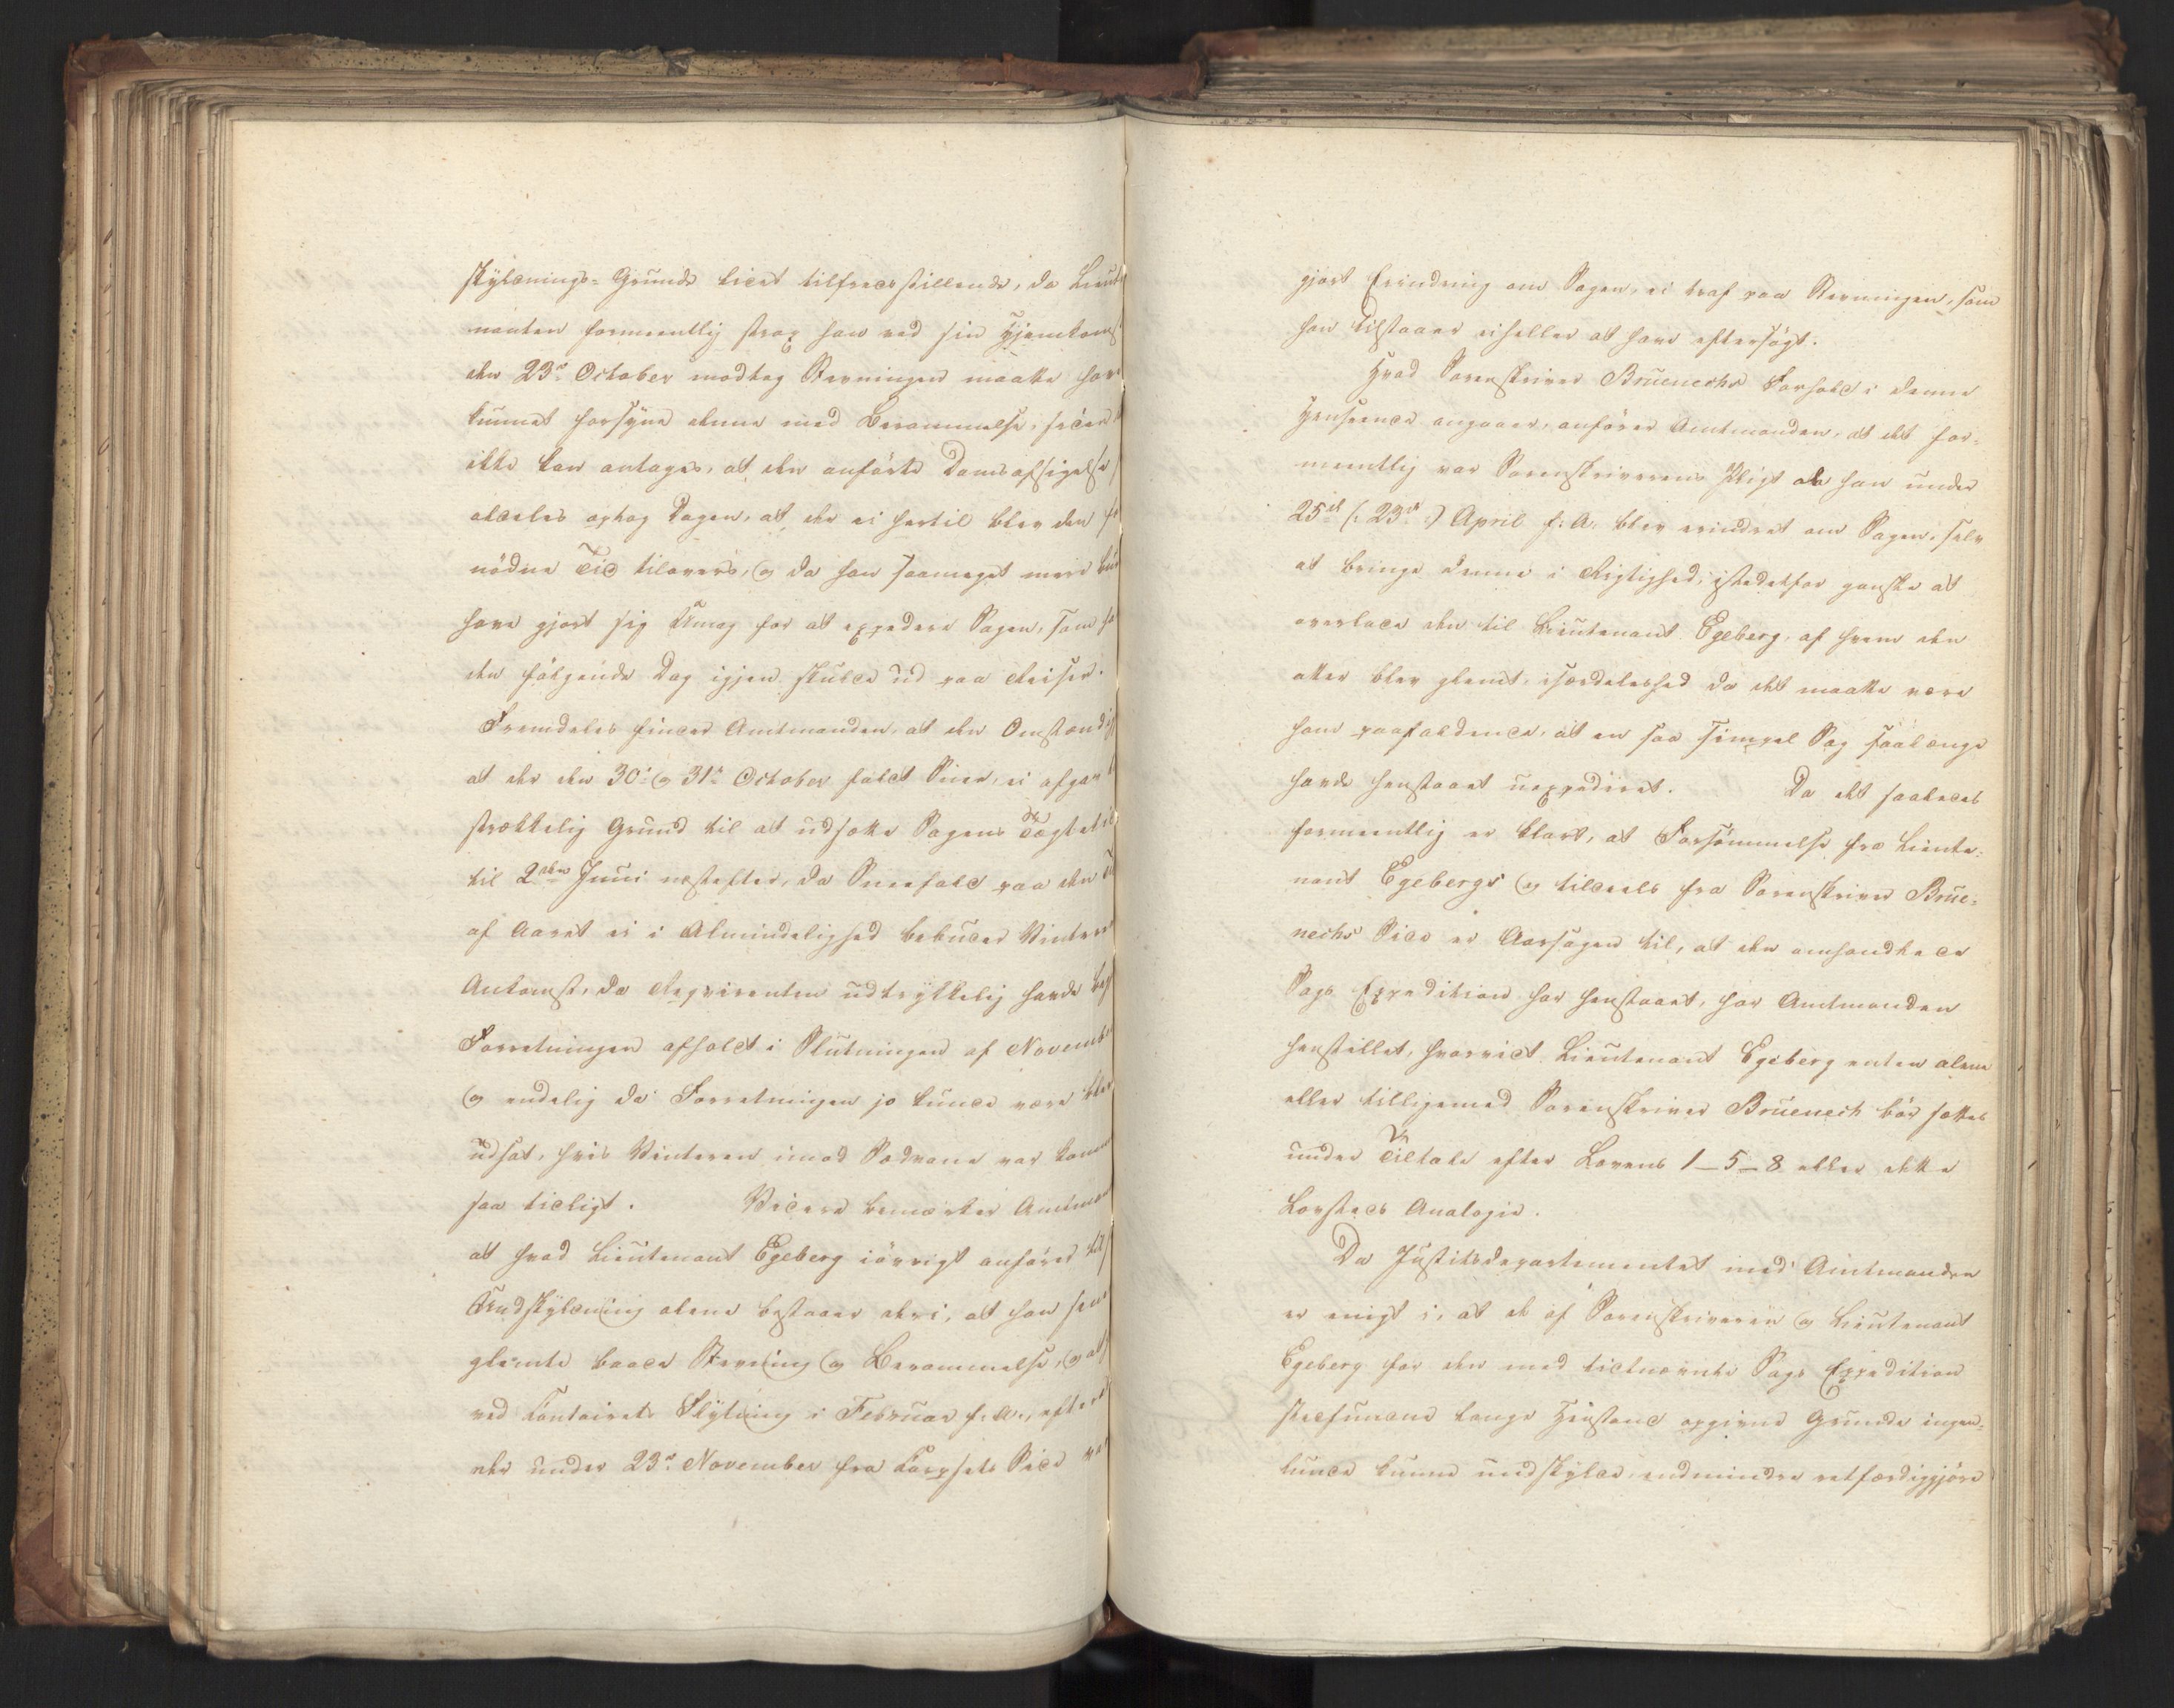 skyldnings-Grunde lidet tilfredsstillende, da Lieute
nanten formeentlig strax han ved sin Hjemkomst
den 23de October modtog Stevningen maatte have
kunnet forsyne denne med Berammelse, siden
ikke kan antages, at den anførte Domsafsigelse
aldeles optog Dagen, at der ei hertil blev den for
nødne Tid tilovers, og da han saameget mere
have gjort sig Umag for at expedere Sagen, som
den følgende Dag igjen skulde ud paa Reiser.
Fremdeles finder Amtmanden, at den Omstændig
at der den 30te og 31te October faldt Snee, ei afgav
strækkelig Grund til at udsætte Sagens
til 2den Juni næstefter, da Sneefald paa den
af Aaret ei i Almindelighed bebuder Vinterens
Ankomst, da Reqvirenten udtrykkelig havde
Forretningen afholdt i Slutningen af November
og endelig da Forretningen jo kunde være blev
udsat, hvis Vinteren imod Sædvane var kommen
saa tidligt. Videre bemærker Amtman
at hvad Lieutenant Egeberg iøvrigt anfører til
Undskyldning alene bestaaer deri, at han
glemte baade Stevning og Berammelse, og at
ved Contoirets Flytning i Februar f. A., efter
der under 23de November fra Corpsets Side var
gjort Erindring om Sagen, ei traf paa Stevningen, som
han tilstaaer eiheller at have eftersøgt.
Hvad Sorenskriver Bruenechs Forhold i denne
Henseende angaaer, anfører Amtmanden, at det for-
meentlig var Sorenskriverens Pligt da han under
25de (: 23de :) April f: A: blev erindret om Sagen, selv
at bringe denne i Rigtighed, istedetfor ganske at
overlade den til Lieutenant Egeberg, af hvem den
atter blev glemt, isærdeleshed da det maatte være
ham paafaldende, at en saa simpel Sag saalænge
havde henstaaet uexpederet. Da det saaledes
formeentlig er klart, at Forsømmelse fra Lieute-
nant Egebergs og tildeels fra Sorenskriver Brue-
nechs Side er Aarsagen til, at den omhandlede
Sags Expedition har henstaaet, har Amtmanden
henstillet, hvorvidt Lieutenant Egeberg enten alene
eller tilligemed Sorenskriver Bruenech bør sættes
under Tiltale efter Lovens 1-5-8 eller dette
Lovsteds Analogie.
Da Justitsdepartementet med Amtmanden
er enigt i, at de af Sorenskriveren og Lieutenant
Egeberg for den med sidstnævnte Sags Expedition
stedfundne lange Henstand opgivne Grunde ingen-
lunde kunne undskylde, endmindre retfærdiggjøre